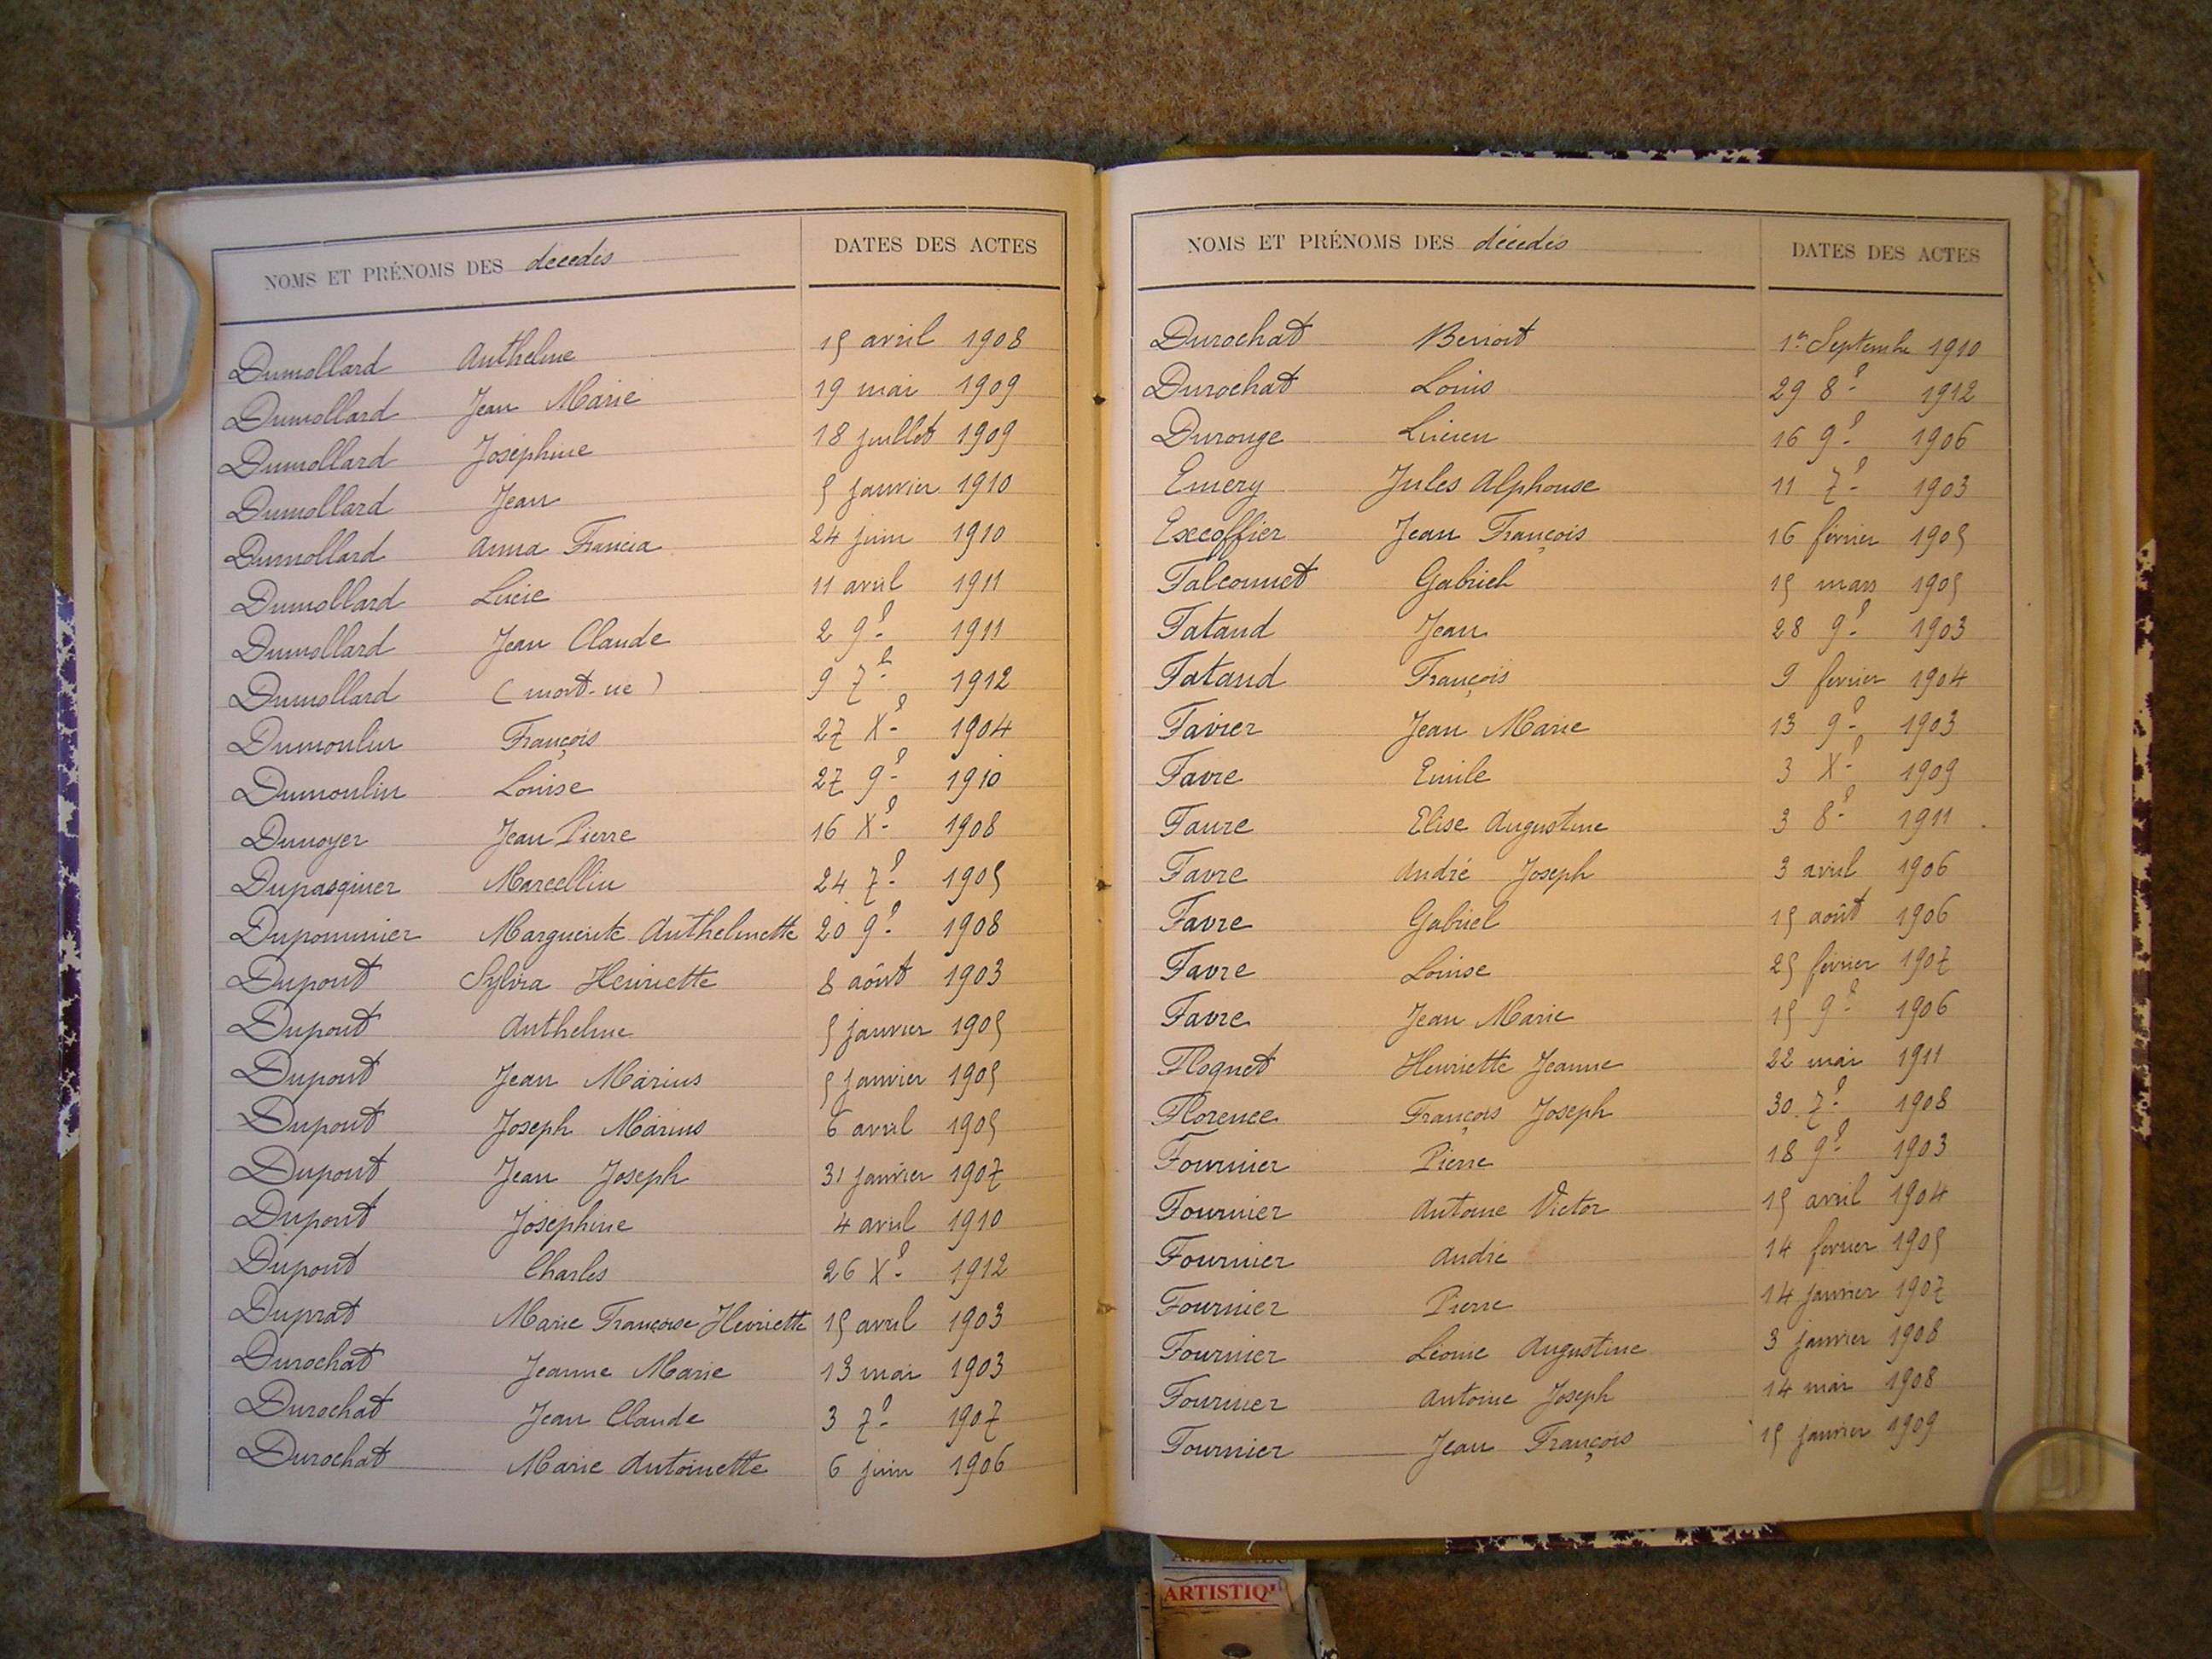 NOMS ET PRÉNOMS DES décédés DATES DES ACTES
Dumollard Anthelme 15 avril 1908
Dumollard Jean Marie 19 mai 1909
Dumollard Joséphine 18 juillet 1909
Dumollard Jean 5 janvier 1910
Dumollard Anna Francia 24 juin 1910
Dumollard Lucie 11 avril 1911
Dumollard Jean Claude 2 9e 1911
Dumollard (mort-né) 9 7e 1912
Dumoulin François 27 Xe 1904
Dumoulin Louise 27 9e 1910
Dunoyer Jean Pierre 16 Xe 1908
Dupasquier Marcellin 24 7e 1905
Dupommier Marguerite Anthelmette 20 9e 1908
Dupont Sylvia Henriette 8 août 1903
Dupont Anthelme 5 janvier 1905
Dupont Jean Marius 5 janvier 1905
Dupont Joseph Marius 6 avril 1905
Dupont Jean Joseph 31 janvier 1907
Dupont Joséphine 4 avril 1910
Dupont Charles 26 Xe 1912
Duprat Marie Françoise Henriette 15 avril 1903
Durochat Jeanne Marie 13 mai 1903
Durochat Jean Claude 3 7e 1907
Durochat Marie Antoinette 6 juin 1906
NOMS ET PRÉNOMS DES décédés DATES DES ACTES
Durochat Benoit 1er Septembre 1910
Durochat Louis 29 8e 1912
Durouge Lucien 16 9e 1906
Emery Jules Alphonse 11 7e 1903
Excoffier Jean François 16 février 1905
Falconnet Gabriel 15 mars 1905
Fataud Jean 28 9e 1903
Fataud François 9 février 1904
Favier Jean Marie 13 9e 1903
Favre Emile 3 Xe 1909
Faure Elise Augustine 3 8e 1911
Favre André Joseph 3 avril 1906
Favre Gabriel 15 août 1906
Favre Louise 25 février 1907
Favre Jean Marie 15 9e 1906
Floquet Henriette Jeanne 22 mai 1911
Florence François Joseph 30 7e 1908
Fournier Pierre 18 9e 1903
Fournier Antoine Victor 15 avril 1904
Fournier André 14 février 1905
Fournier Pierre 14 janvier 1907
Fournier Léonie Augustine 3 janvier 1908
Fournier Antoine Joseph 14 mai 1908
Fournier Jean François 15 janvier 1909
ARTISTIQ